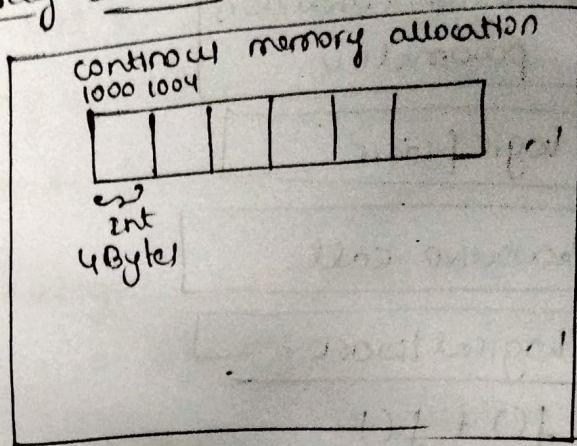 continous memory allocation
1000 1004
int
4 Bytes